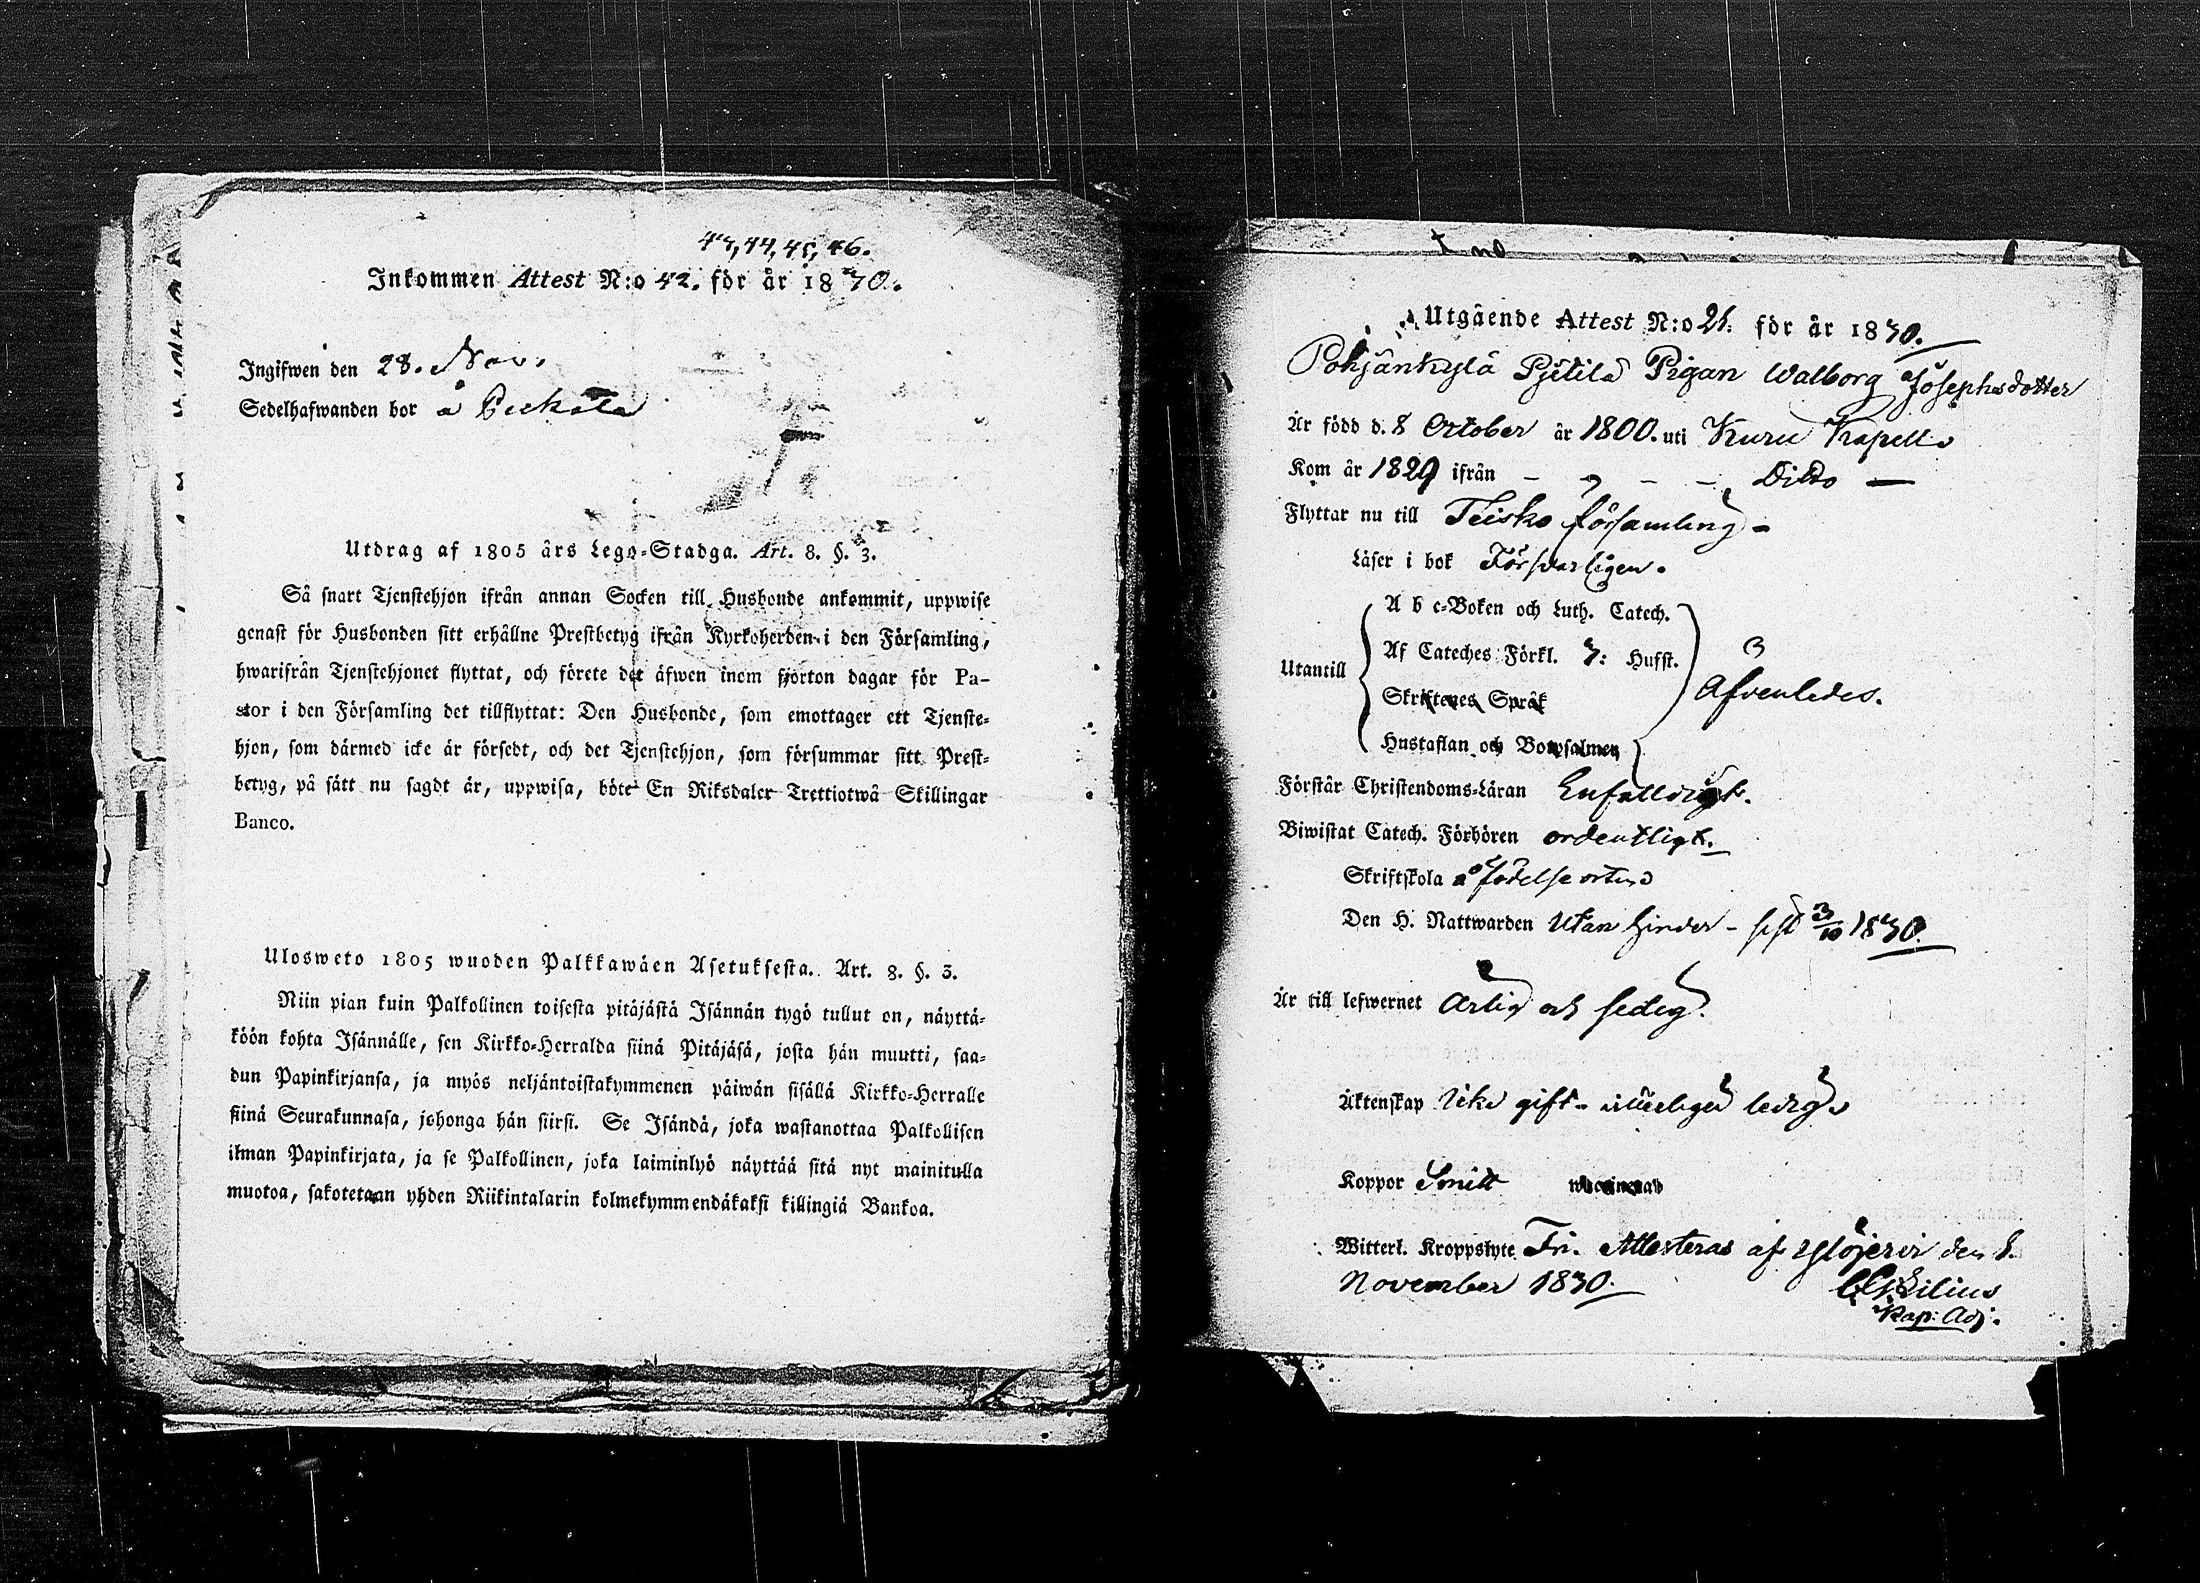 43, 44, 45, 46.
Inkommen Attest N:o 42. för år 1830.
Ingifwen den 28. Nov.
Sedelhafwanden bor å
Utdrag af 1805 års Lego-Stadga. Art. 8. §. 3.
Så snart Tjenstehjon ifrån annan Socken till Husbonde ankommit, uppwise
genast för Husbonden sitt erhållne Prestbetyg ifrån Kyrkoherden i den Församling,
hwarifrån Tjenstehjonet flyttat, och förete det äfwen inom fjorton dagar för Pa-
stor i den Församling det tillflyttat: Den Husbonde, som emottager ett Tjenste-
hjon, som därmed icke är försedt, och det Tjenstehjon, som försummar sitt Prest-
betyg, på sätt nu sagdt är, uppwisa, böte En Riksdaler Trettiotwå Skillingar
Banco.
Ulosweto 1805 wuoden Palkkawäen Asetuksesta. Art. 8. §. 3.
Niin pian kuin Palkollinen toisesta pitäjästä Isännän tygö tullut on, näyttä-
köön kohta Isännälle, sen Kirkko-Herralda siinä Pitäjäsä, josta hän muutti, saa-
dun Papinkirjansa, ja myös neljäntoistakymmenen päiwän sisällä Kirkko-Herralle
siinä Seurakunnasa, johonga hän siirsi. Se Isändä, joka wastanottaa Palkollisen
ilman Papinkirjata, ja se Palkollinen, joka laiminlyö näyttää sitä nyt mainitulla
muotoa, sakotetaan yhden Riikintalarin kolmekymmendäkaksi killingiä Bankoa.
Utgående Attest N:o 21. för år 1830.
Pohjankylä Pjetilä Pigan Walborg Josephsdotter
Är född d. 8 October år 1800. uti Kuru Kapell
Kom år 1829 ifrån - " - - Ditto —
Flyttar nu till Teisko församling -
Läser i bok Försvarligen.
A b c-Boken och Luth. Catech.
Utantill Af Cateches Förkl. 3: Hufst.
Skriftenes Språk Äfvenledes.
Hustaflan och Botpsalmen
Förstår Christendoms-Läran Enfalldigt.
Biwistat Catech. Förhören ordentligt.
Skriftskola å födelse orten
Den H. Nattwarden Utan hinder - sist 3/10 1830.
Är till lefwernet Arlig och sedig.
Äktenskap Icke gift - ledig
Koppor Smitt
Witterl. Kroppslyte Fri. Attesteras af Ylöjervi den 8.
November 1830.
Kap: Adj.